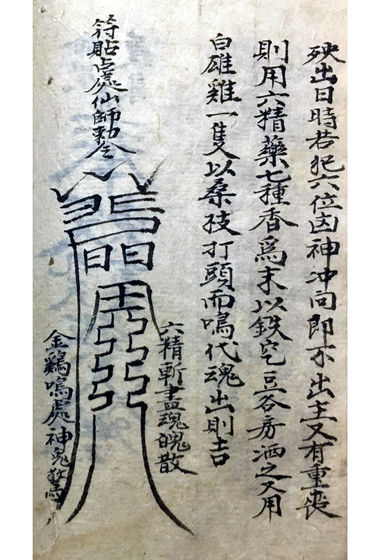 殃出日時若犯六位因神冲向即不出主又有重喪
則用六精藥七種香為末以鉄 豆谷房洒之又用
白雄雞一隻以桑枝打頭而鳴代魂出則吉
符貼占處仙師勅令
六精斬盡魂魄散
金鷄鳴處神鬼驚